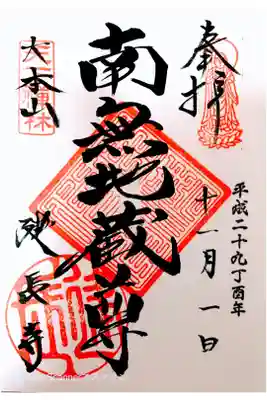 奉拝
平成二十九丁酉年
十一月一日
南無地蔵尊
大本山
建長寺